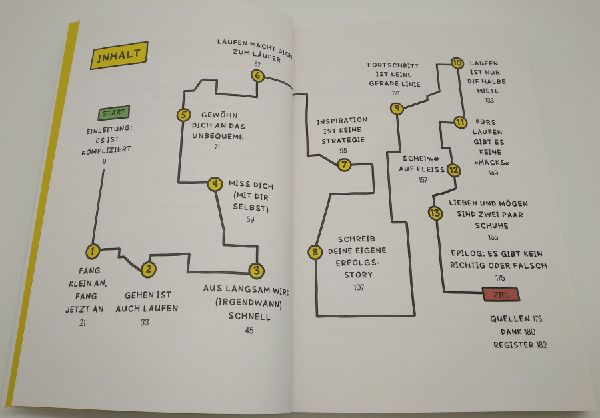 INHALT
START
EINLEITUNG:
ES IST
KOMPLIZIERT
9
1
FANG
KLEIN AN,
FANG
JETZT AN
21
2
GEHEN IST
AUCH LAUFEN
33
3
AUS LANGSAM WIRD
(IRGENDWANN)
SCHNELL
45
4
MISS DICH
(MIT DIR
SELBST)
59
5
GEWÖHN
DICH AN DAS
UNBEQUEME
71
6
LAUFEN MACHT DICH
ZUM LÄUFER
87
7
INSPIRATION
IST KEINE
STRATEGIE
95
8
SCHREIB
DEINE EIGENE
ERFOLGS-
STORY
107
9
FORTSCHRITT
IST KEINE
GERADE LINIE
10
LAUFEN
IST NUR
DIE HALBE
MIETE
11
FÜRS
LAUFEN
GIBT ES
KEINE
»MACKE«
149
12
SCHEI%®
AUF FLEISS
157
13
LIEBEN UND MÖGEN
SIND ZWEI PAAR
SCHUHE
EPILOG: ES GIBT KEIN
RICHTIG ODER FALSCH
175
ZIEL
QUELLEN 179
DANK 180
REGISTER 182